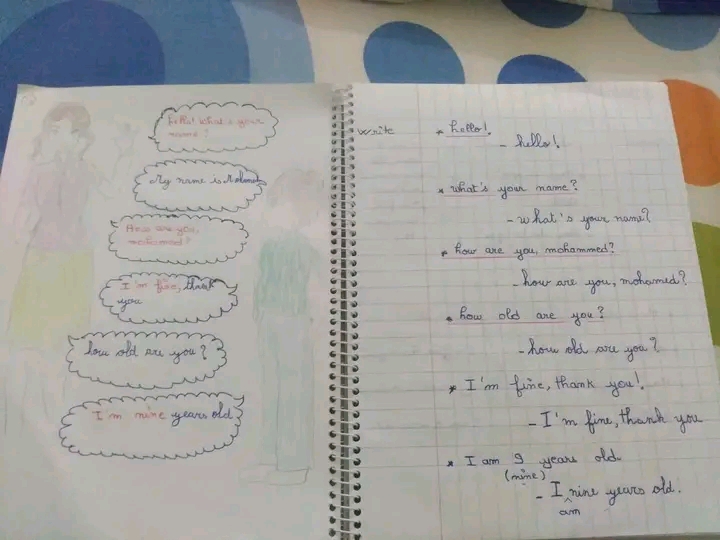 Hello! What's your
name?
My name is Mohamed
How are you,
mohammed?
I'm fine, thank
you
how old are you?
I'm nine years old
write
* hello!
- hello!
* what's your name?
- what's your name?
* how are you, mohammed?
- how are you, mohamed?
* how old are you?
- how old are you?
* I'm fine, thank you!
- I'm fine, thank you
* I am 9 years old.
(nine)
- I nine years old.
^
am